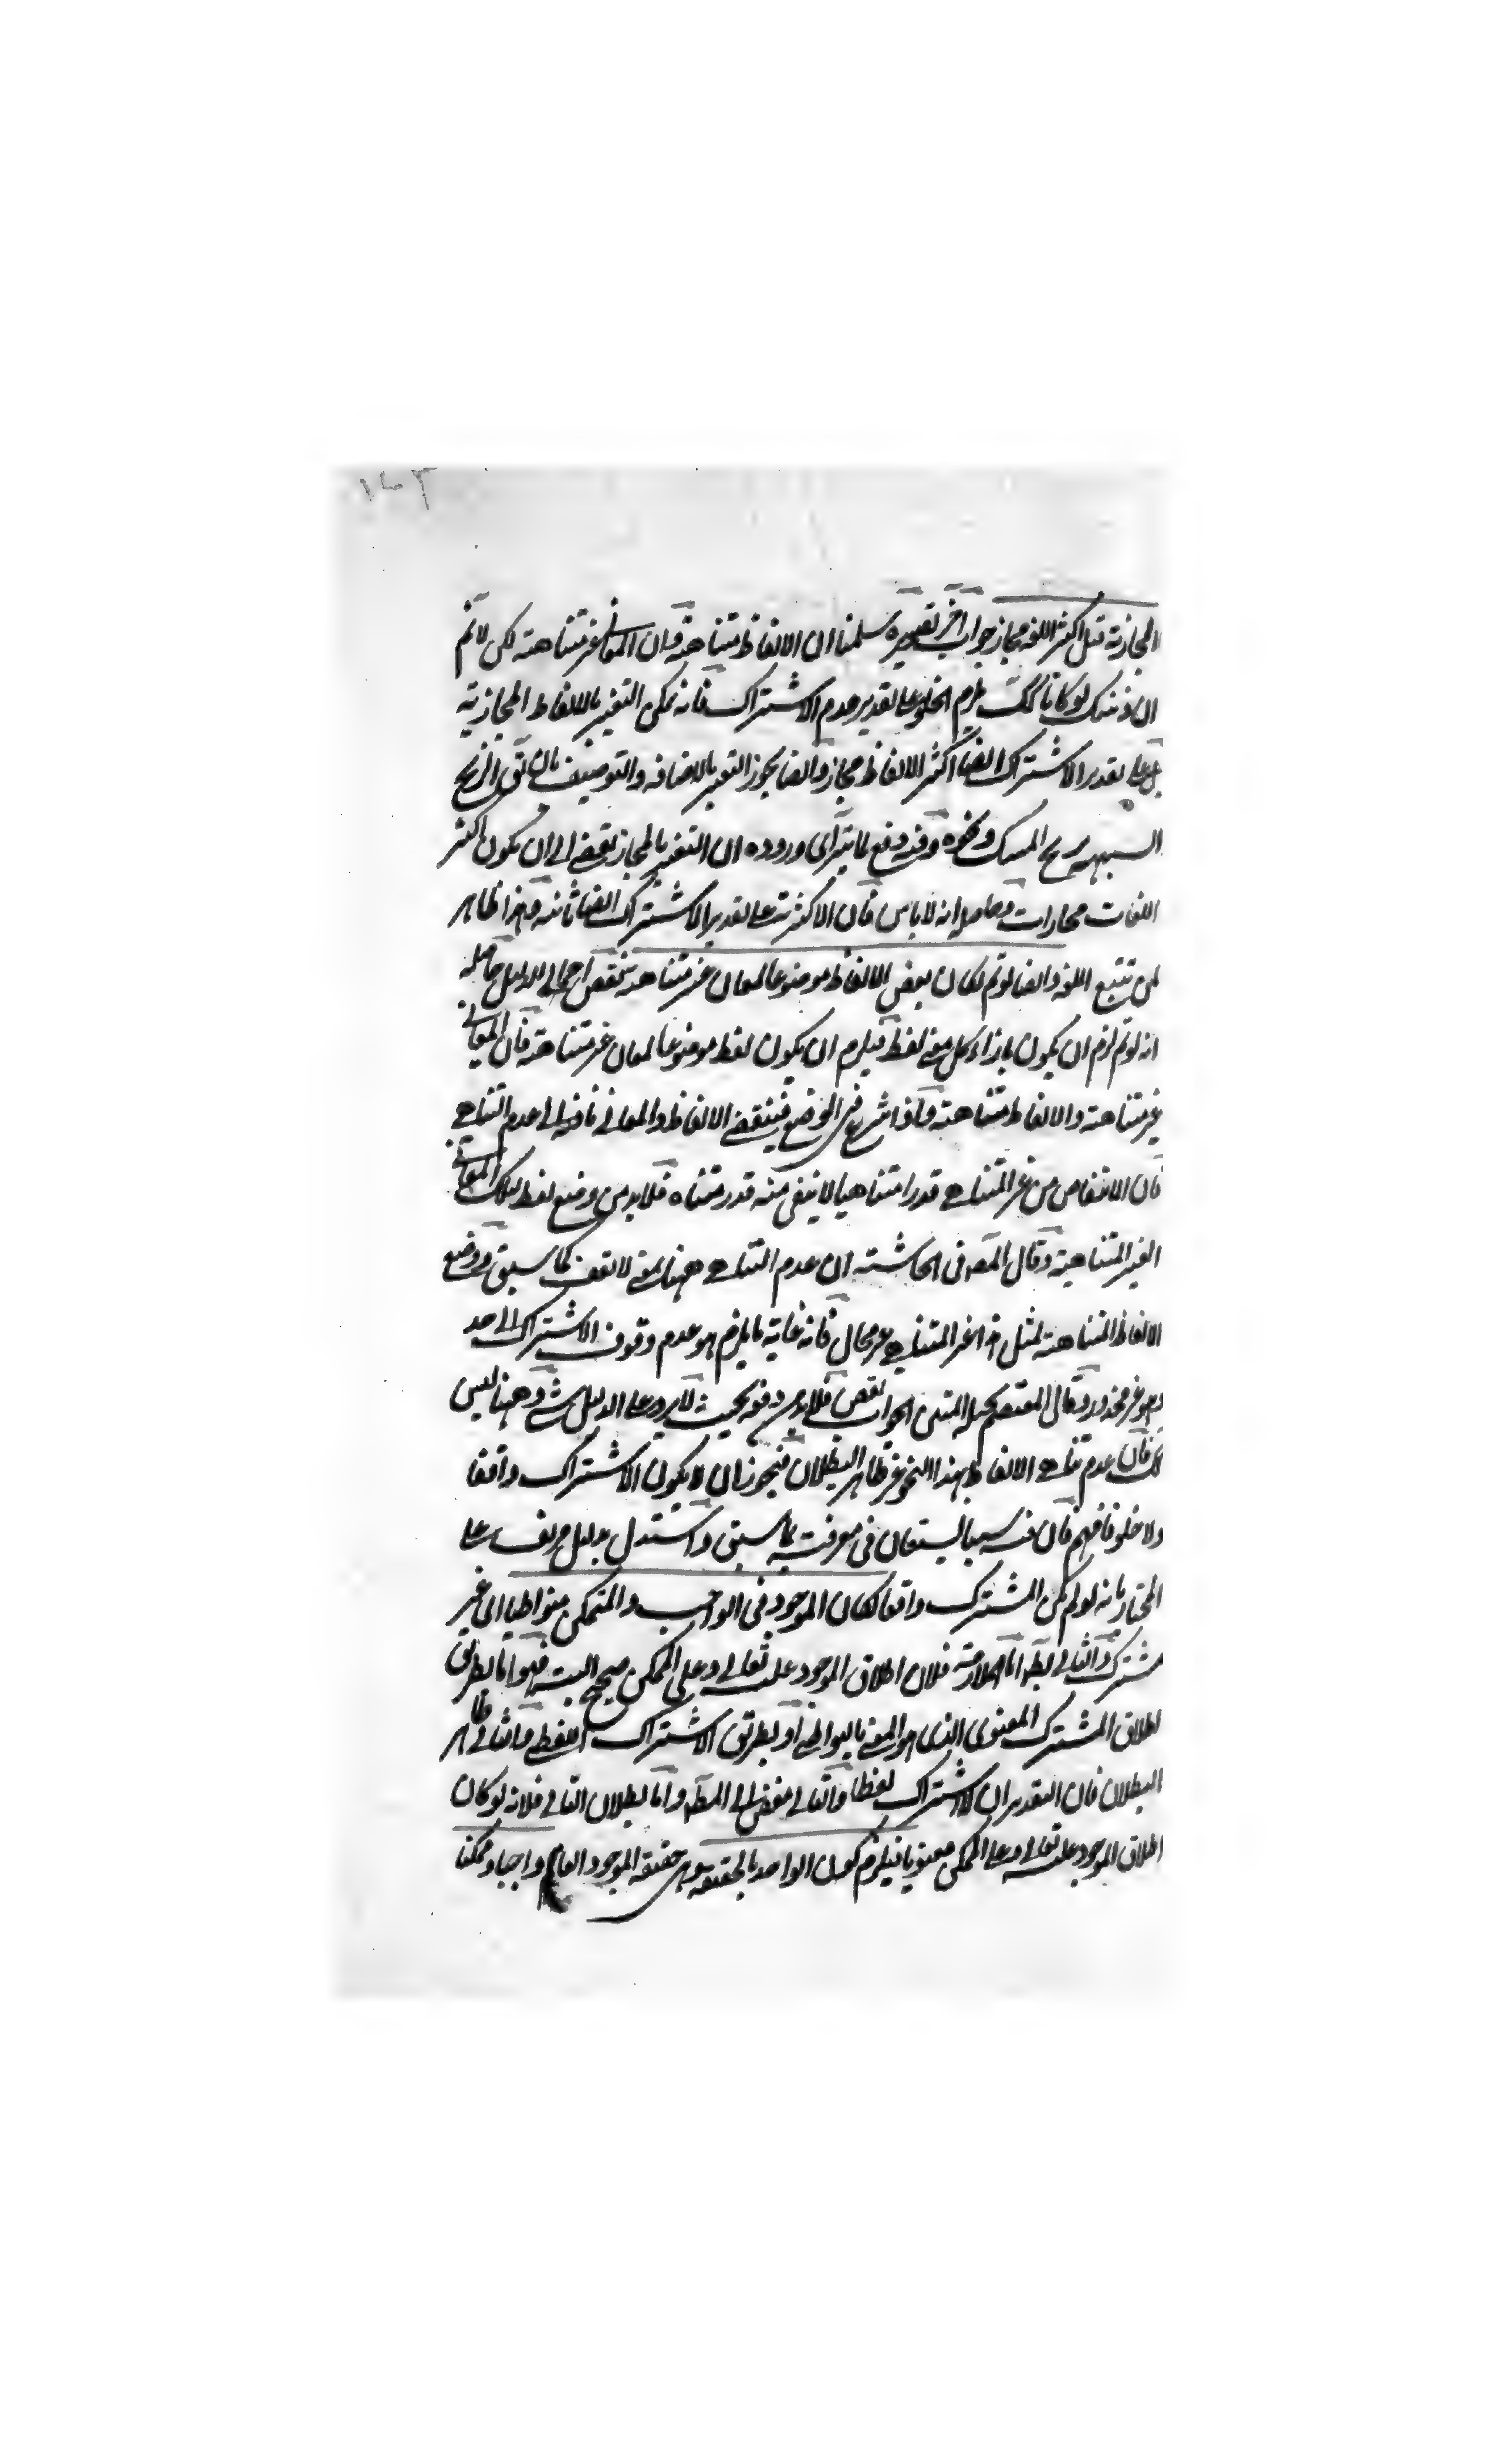 ١٤٣
المجازية قيل اكثر اللغة مجاز جواب آخر تقريره سلمنا ان الالفاظ متناهية وان المعانى غير متناهية لكن لا نم
ان ذينك لو كانا كك يلزم الخلو على تقدير عدم الاشتراك فانه يمكن التعبير بالالفاظ المجازية
بل على تقدير الاشتراك ايضا اكثر الالفاظ مجاز وايضا يجوز التعبير بالاضافة والتوصيف الريح
الشبيه بريح المسك ونحوه وفيه دفع لما يترآى وروده ان التعبير بالمجاز يفضى الى ان يكون اكثر
اللغات مجازات وحاصله انه لا باس فان الاكثرية على تقدير الاشتراك ايضا ثابتة وهذا ظاهر
لمن تتبع اللغة وايضا لو تم لكان بعض الالفاظ موضوعا لمعان غير متناهية نقض اجمالى للدليل حاصله
انه لو تم لزم ان يكون بازاء كل معنى لفظ فيلزم ان يكون لفظ موضوعا لمعان غير متناهية فان المعانى
غير متناهية والالفاظ متناهية واذا شرع فى الوضع فينقضى الالفاظ والمعانى باقية الى عدم التناهى
فان الانتقاص من غير المتناهى قدرا متناهيا لا يبقى منه قدر متناه فلا بد من وضع لفظ لتلك المعانى
الغير المتناهية وقال المصـ فى الحاشية ان عدم التناهى ههنا بمعنى لا تقف كما سبق ووضع
الالفاظ المتناهية لمثل هذا الغير المتناهى غير محال فانه غاية ما يلزم هو عدم وقوف الاشتراك الى حد
وهو غير محذور وقال المعتصم بحبله المتين الجواب نقض فلا بد من دفعه بحيث لا يرد على الدليل شئ وههنا ليس
كك فان عدم تناهى الالفاظ بهذا النحو غير ظاهر البطلان فيجوز ان لا يكون الاشتراك واقعا
ولا خلو فافهم فان فيه سيا ليستعان فى معرفته بما سبق واستدل بدليل مزيف على
المختار بانه لو لم يكن المشترك واقعا لكان الموجود فى الواجب والممكن متواطيا اى غير
مشترك والتالى بط اما الملازمة فلان اطلاق الموجود عليه تعالى وعلى الممكن صحيح البتة فهو اما بطريق
اطلاق المشترك المعنوى الذى هو المعنى بالتواطى او بطريق الاشتراك اللفظى والثانى ظاهر
البطلان فان التقدير ان لا اشتراك لفظا والتالى مفض الى المط واما بطلان التالى فلانه لو كان
اطلاق الموجود عليه تعالى وعلى الممكن معنويا فيلزم كون الواحد بالحقيقة وهى حقيقة الموجود العام واجبا وممكنا